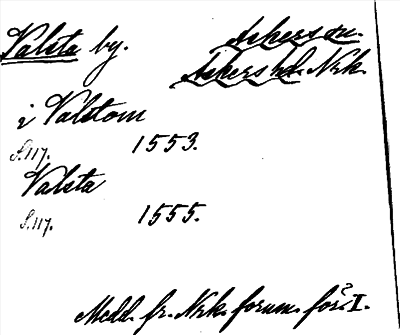 Valsta by. Askers sn.
Askers hd. Nrk.
i Valstom
S. 117. 1553.
Valsta
S. 117. 1555.
Medd. fr. Nrk. fornm. för. I.